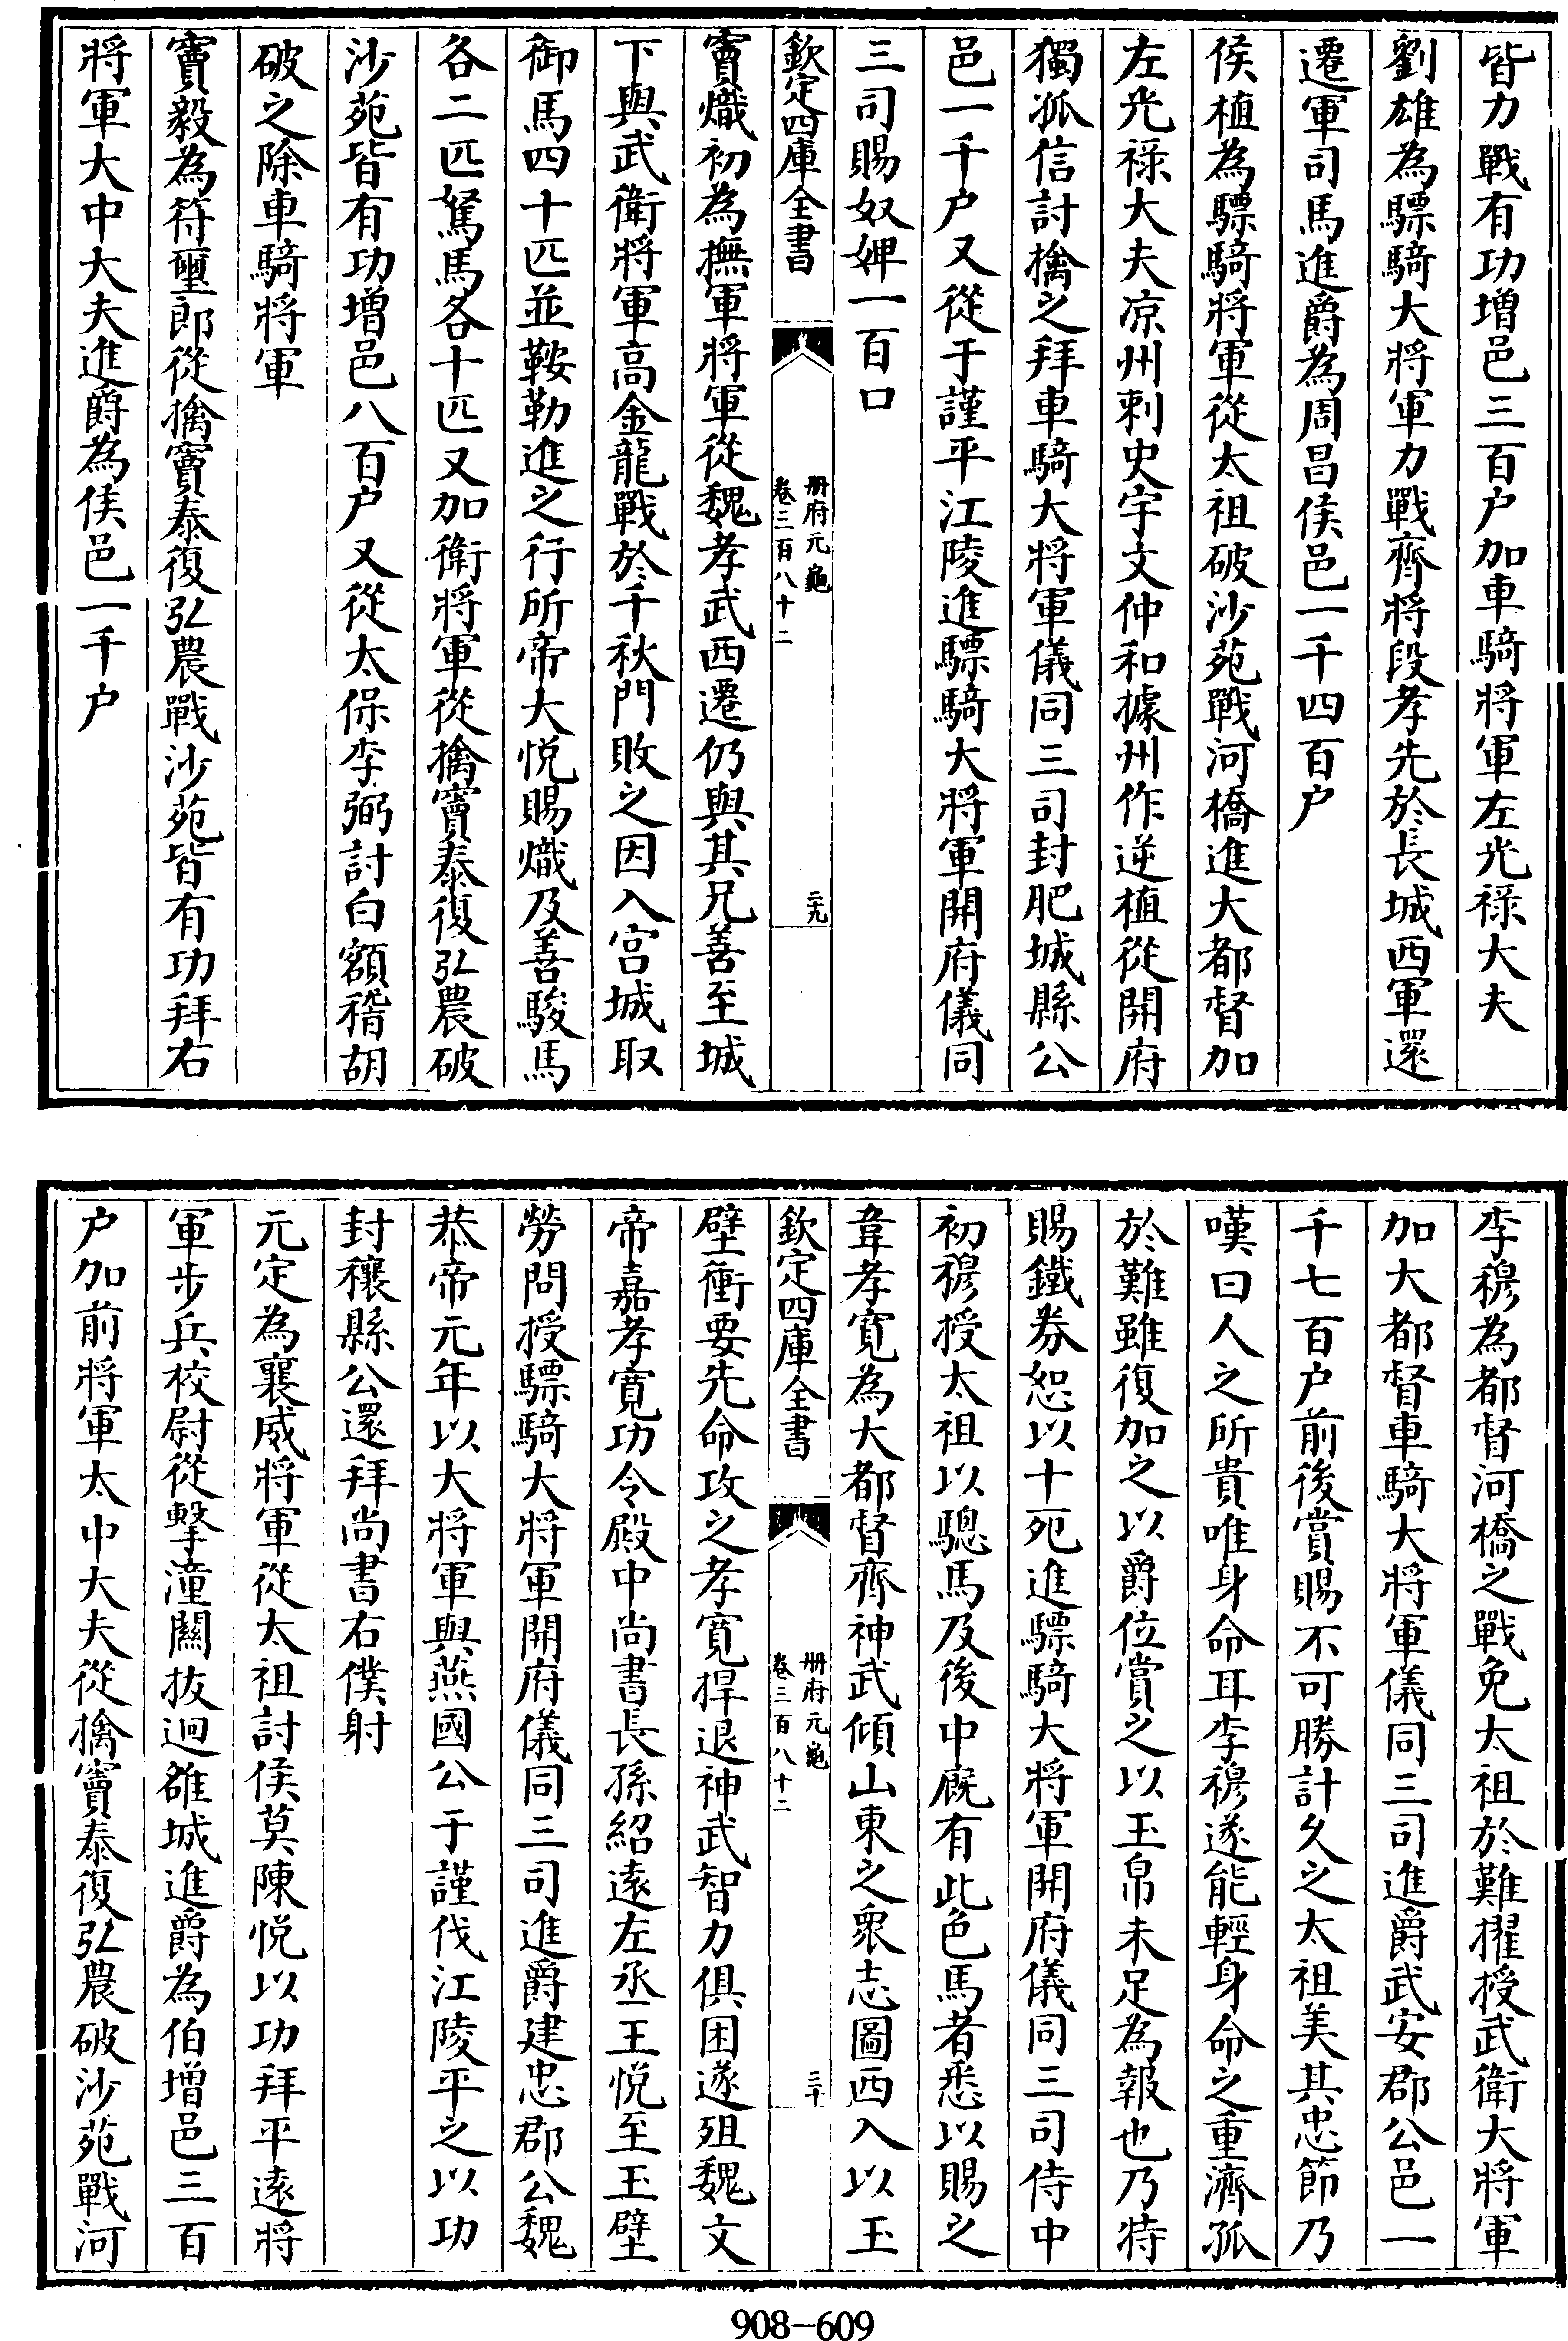 皆力戰有功增邑三百户加車騎將軍左光祿大夫
劉雄為驃騎大將軍力戰齊將段孝先於長城西軍還
遷軍司馬進爵為周昌侯邑一千四百户
侯植為驃騎將軍從太祖破沙苑戰河橋進大都督加
左光祿大夫凉州刺史宇文仲和據州作逆植從開府
獨孤信討擒之拜車騎大將軍儀同三司封肥城縣公
邑一千户又從于謹平江陵進驃騎大將軍開府儀同
三司賜奴婢一百口
欽定四庫全書
冊府元龜
卷三百八十二
二十九
竇熾初為撫軍將軍從魏孝武西遷仍與其兄善至城
下與武衛將軍高金龍戰於千秋門敗之因入宫城取
御馬四十匹並鞍勒進之行所帝大悦賜熾及善駿馬
各二匹駑馬各十匹又加衛將軍從擒竇泰復弘農破
沙苑皆有功增邑八百户又從太保李弼討白額稽胡
破之除車騎將軍
竇毅為符璽郎從擒竇泰復弘農戰沙苑皆有功拜右
將軍大中大夫進爵為侯邑一千户
李穆為都督河橋之戰免太祖於難擢授武衛大將軍
加大都督車騎大將軍儀同三司進爵武安郡公邑一
千七百户前後賞賜不可勝計久之太祖美其忠節乃
嘆曰人之所貴唯身命耳李穆遂能輕身命之重濟孤
於難雖復加之以爵位賞之以玉帛未足為報也乃特
賜鐵劵恕以十死進驃騎大將軍開府儀同三司侍中
初穆授太祖以驄馬及後中廐有此色馬者悉以賜之
韋孝寛為大都督齊神武傾山東之衆志圖西入以玉
欽定四庫全書
冊府元龜
卷三百八十二
三十
壁衝要先命攻之孝寛捍退神武智力俱困遂殂魏文
帝嘉孝寛功令殿中尚書長孫紹遠左丞王悦至玉壁
勞問授驃騎大將軍開府儀同三司進爵建忠郡公魏
恭帝元年以大將軍與燕國公于謹伐江陵平之以功
封穰縣公還拜尚書右僕射
元定為襄威將軍從太祖討侯莫陳悦以功拜平遠將
軍步兵校尉從擊潼關拔迴雒城進爵為伯增邑三百
户加前將軍太中大夫從擒竇泰復弘農破沙苑戰河
908—609